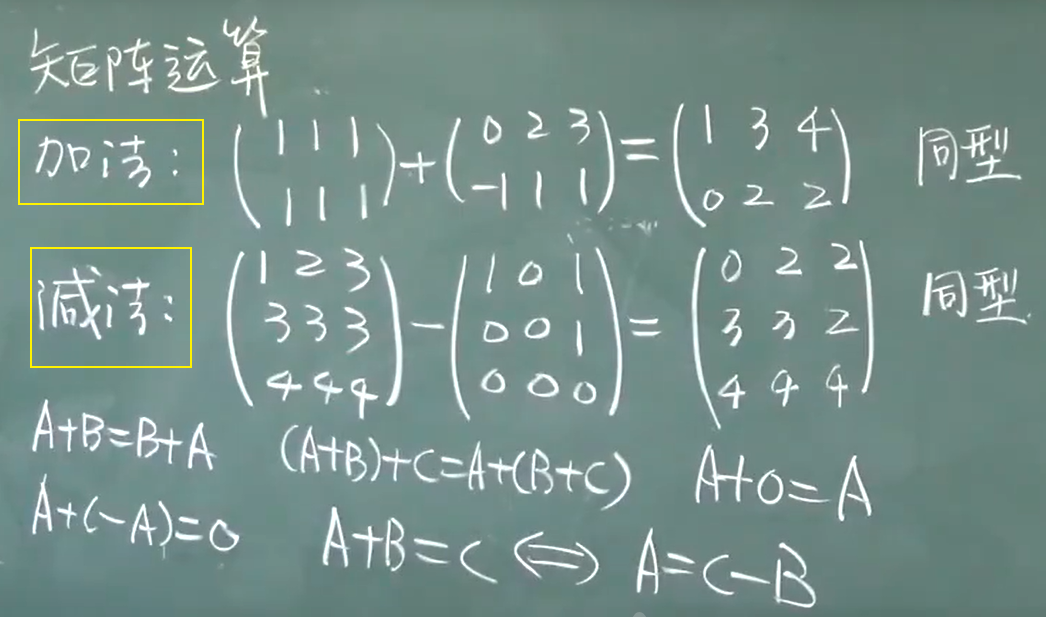 矩阵运算
加法: (1 1 1
1 1 1) + (0 2 3
-1 1 1) = (1 3 4
0 2 2) 同型
减法: (1 2 3
3 3 3
4 4 4) - (1 0 1
0 0 1
0 0 0) = (0 2 2
3 3 2
4 4 4) 同型.
A+B=B+A (A+B)+C=A+(B+C) A+0=A
A+(-A)=0 A+B=C ⇔ A=C-B